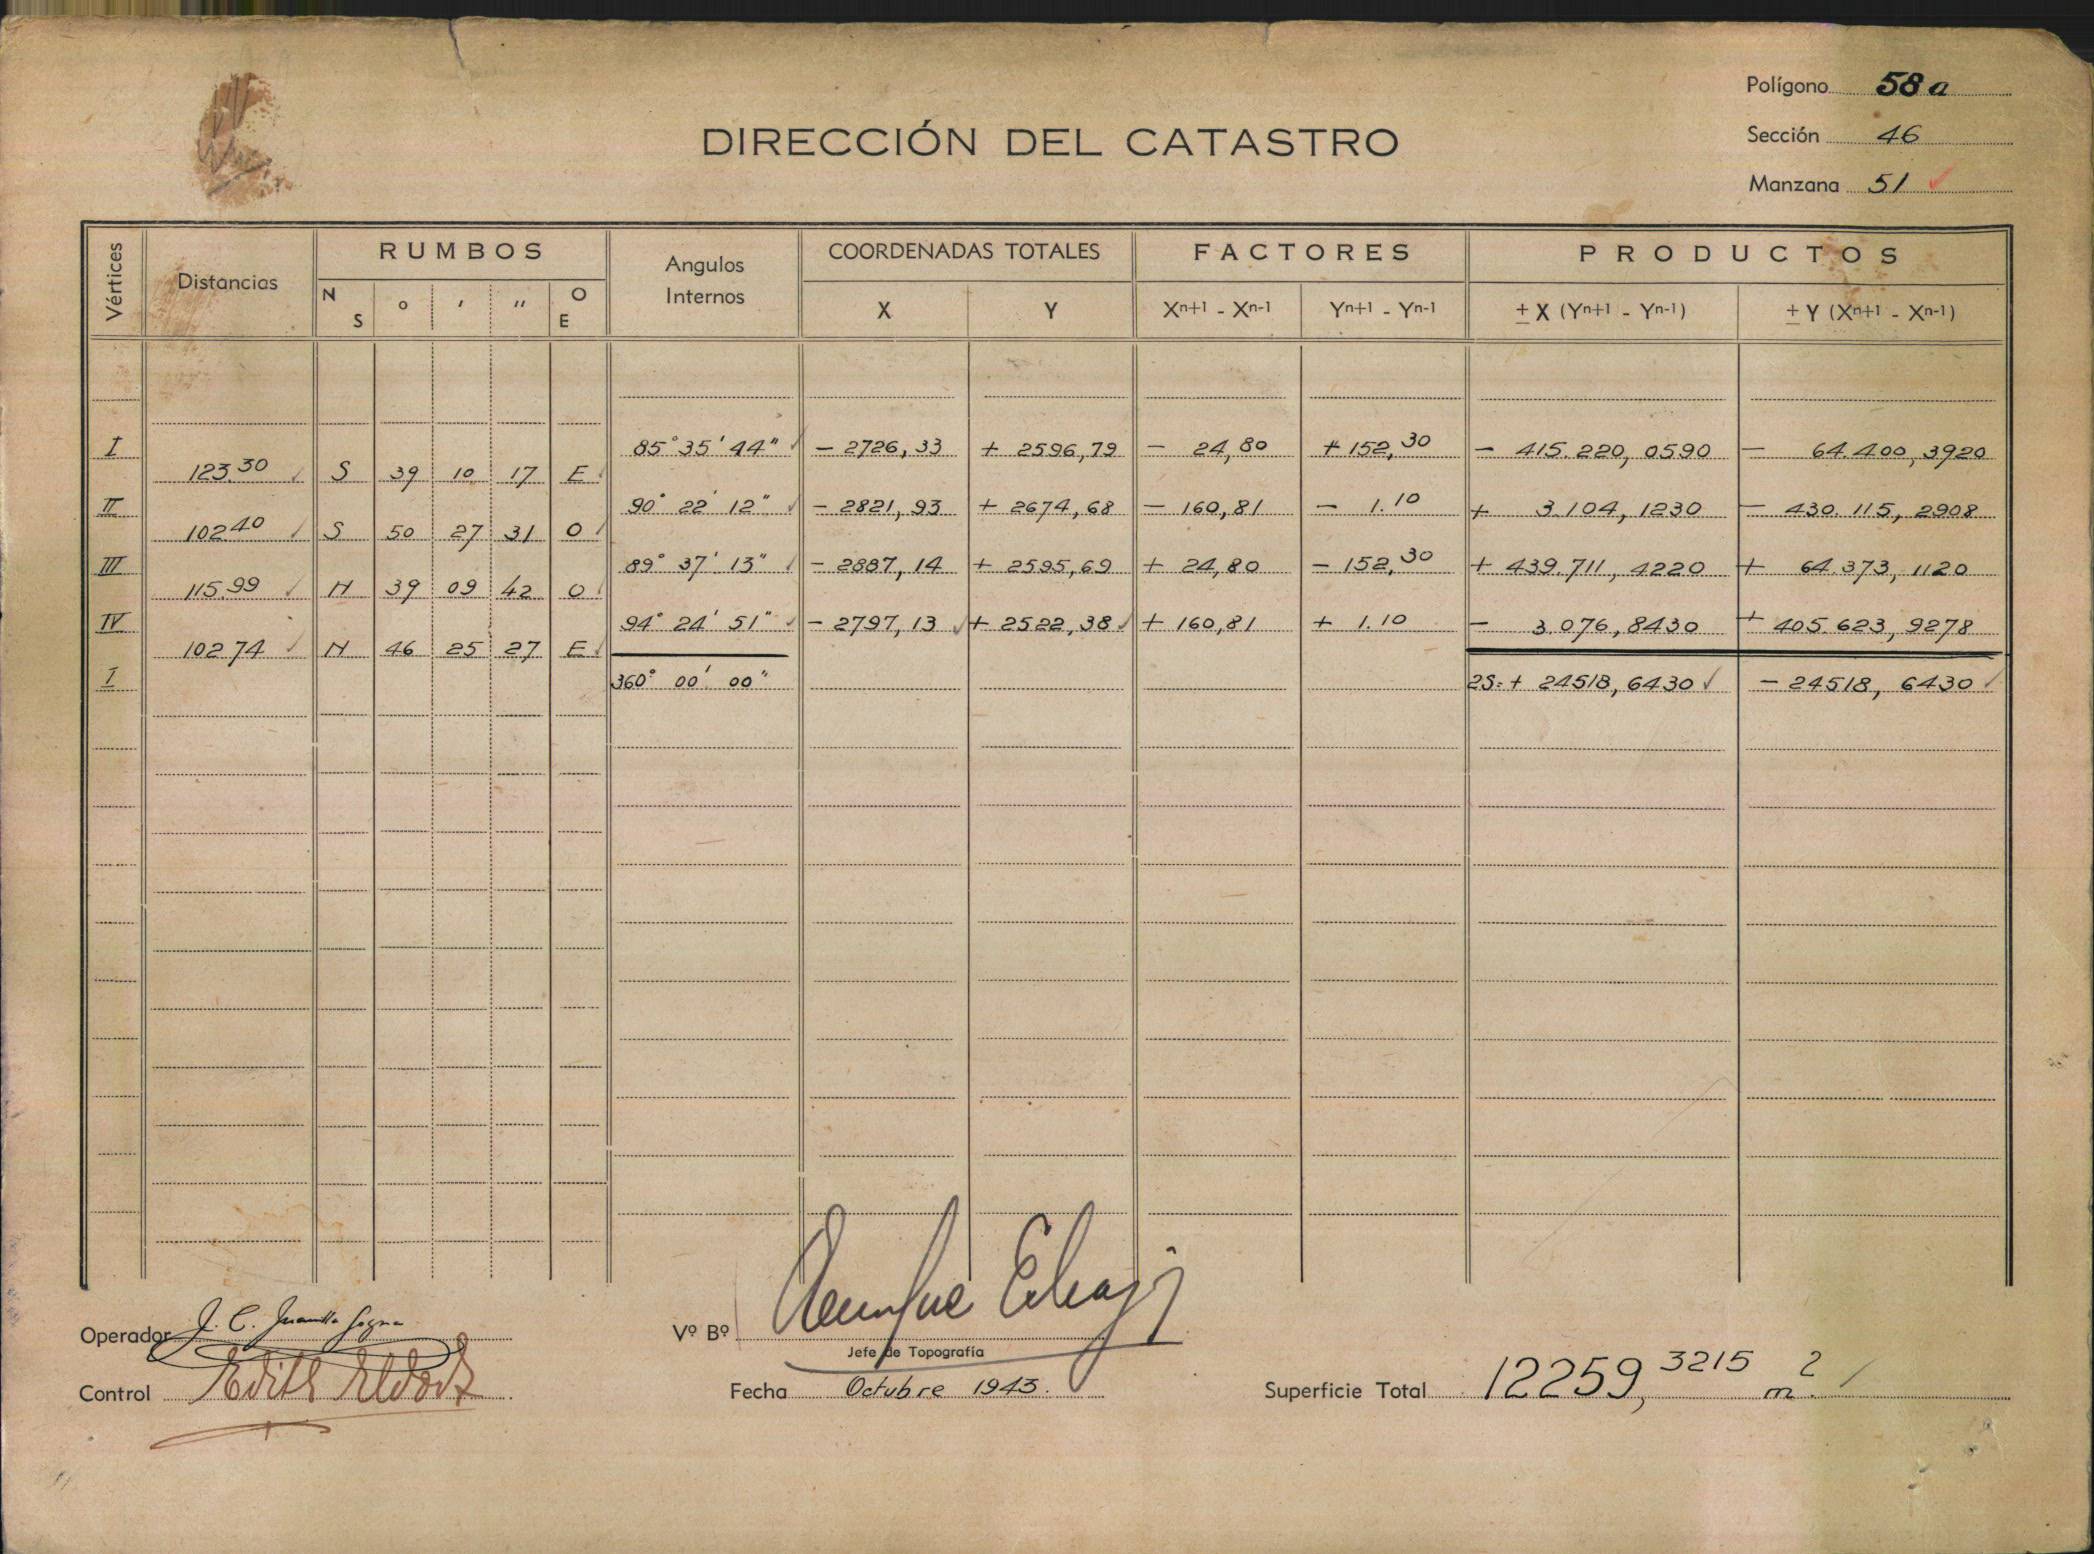 Polígono 58 a
DIRECCIÓN DEL CATASTRO
Sección 46
Manzana 51 ✓
Vértices Distancias RUMBOS Angulos Internos COORDENADAS TOTALES FACTORES PRODUCTOS
N S ° ' " O E X Y Xn+1 - Xn-1 Yn+1 - Yn-1 ± X (Yn+1 - Yn-1) ± Y (Xn+1 - Xn-1)
I 85° 35' 44" - 2726,33 + 2596,79 - 24,80 + 152,30 - 415.220,0590 - 64.400,3920
123.30 S 39 10 17 E
II 90° 22' 12" - 2821,93 + 2674,68 - 160,81 - 1.10 + 3.104,1230 - 430.115,2908
102.40 S 50 27 31 O
III 89° 37' 13" - 2887,14 + 2595,69 + 24,80 - 152,30 + 439.711,4220 + 64.373,1120
115.99 N 39 09 42 O
IV 94° 24' 51" - 2797,13 + 2522,38 + 160,81 + 1.10 - 3.076,8430 + 405.623,9278
102.74 N 46 25 27 E
I 360° 00' 00" 2S=+ 24518,6430 - 24518,6430
Operador J. C.
Vº Bº
Jefe de Topografía
Control Edith
Fecha Octubre 1943.
Superficie Total 12259,3215 m2.